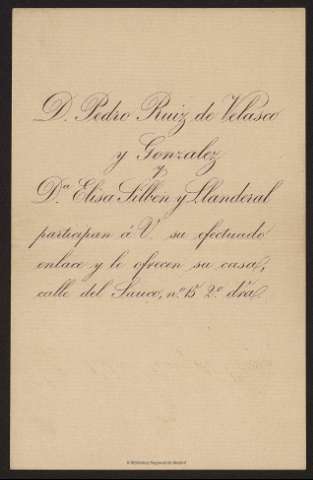 D. Pedro Ruiz de Velasco
y Gonzalez
y
D.ª Elisa Silben y Llanderal
participan á V. su efectuado
enlace y le ofrecen su casa,
calle del Sauco, n.º 15 2.º dra.
© Biblioteca Regional de Madrid